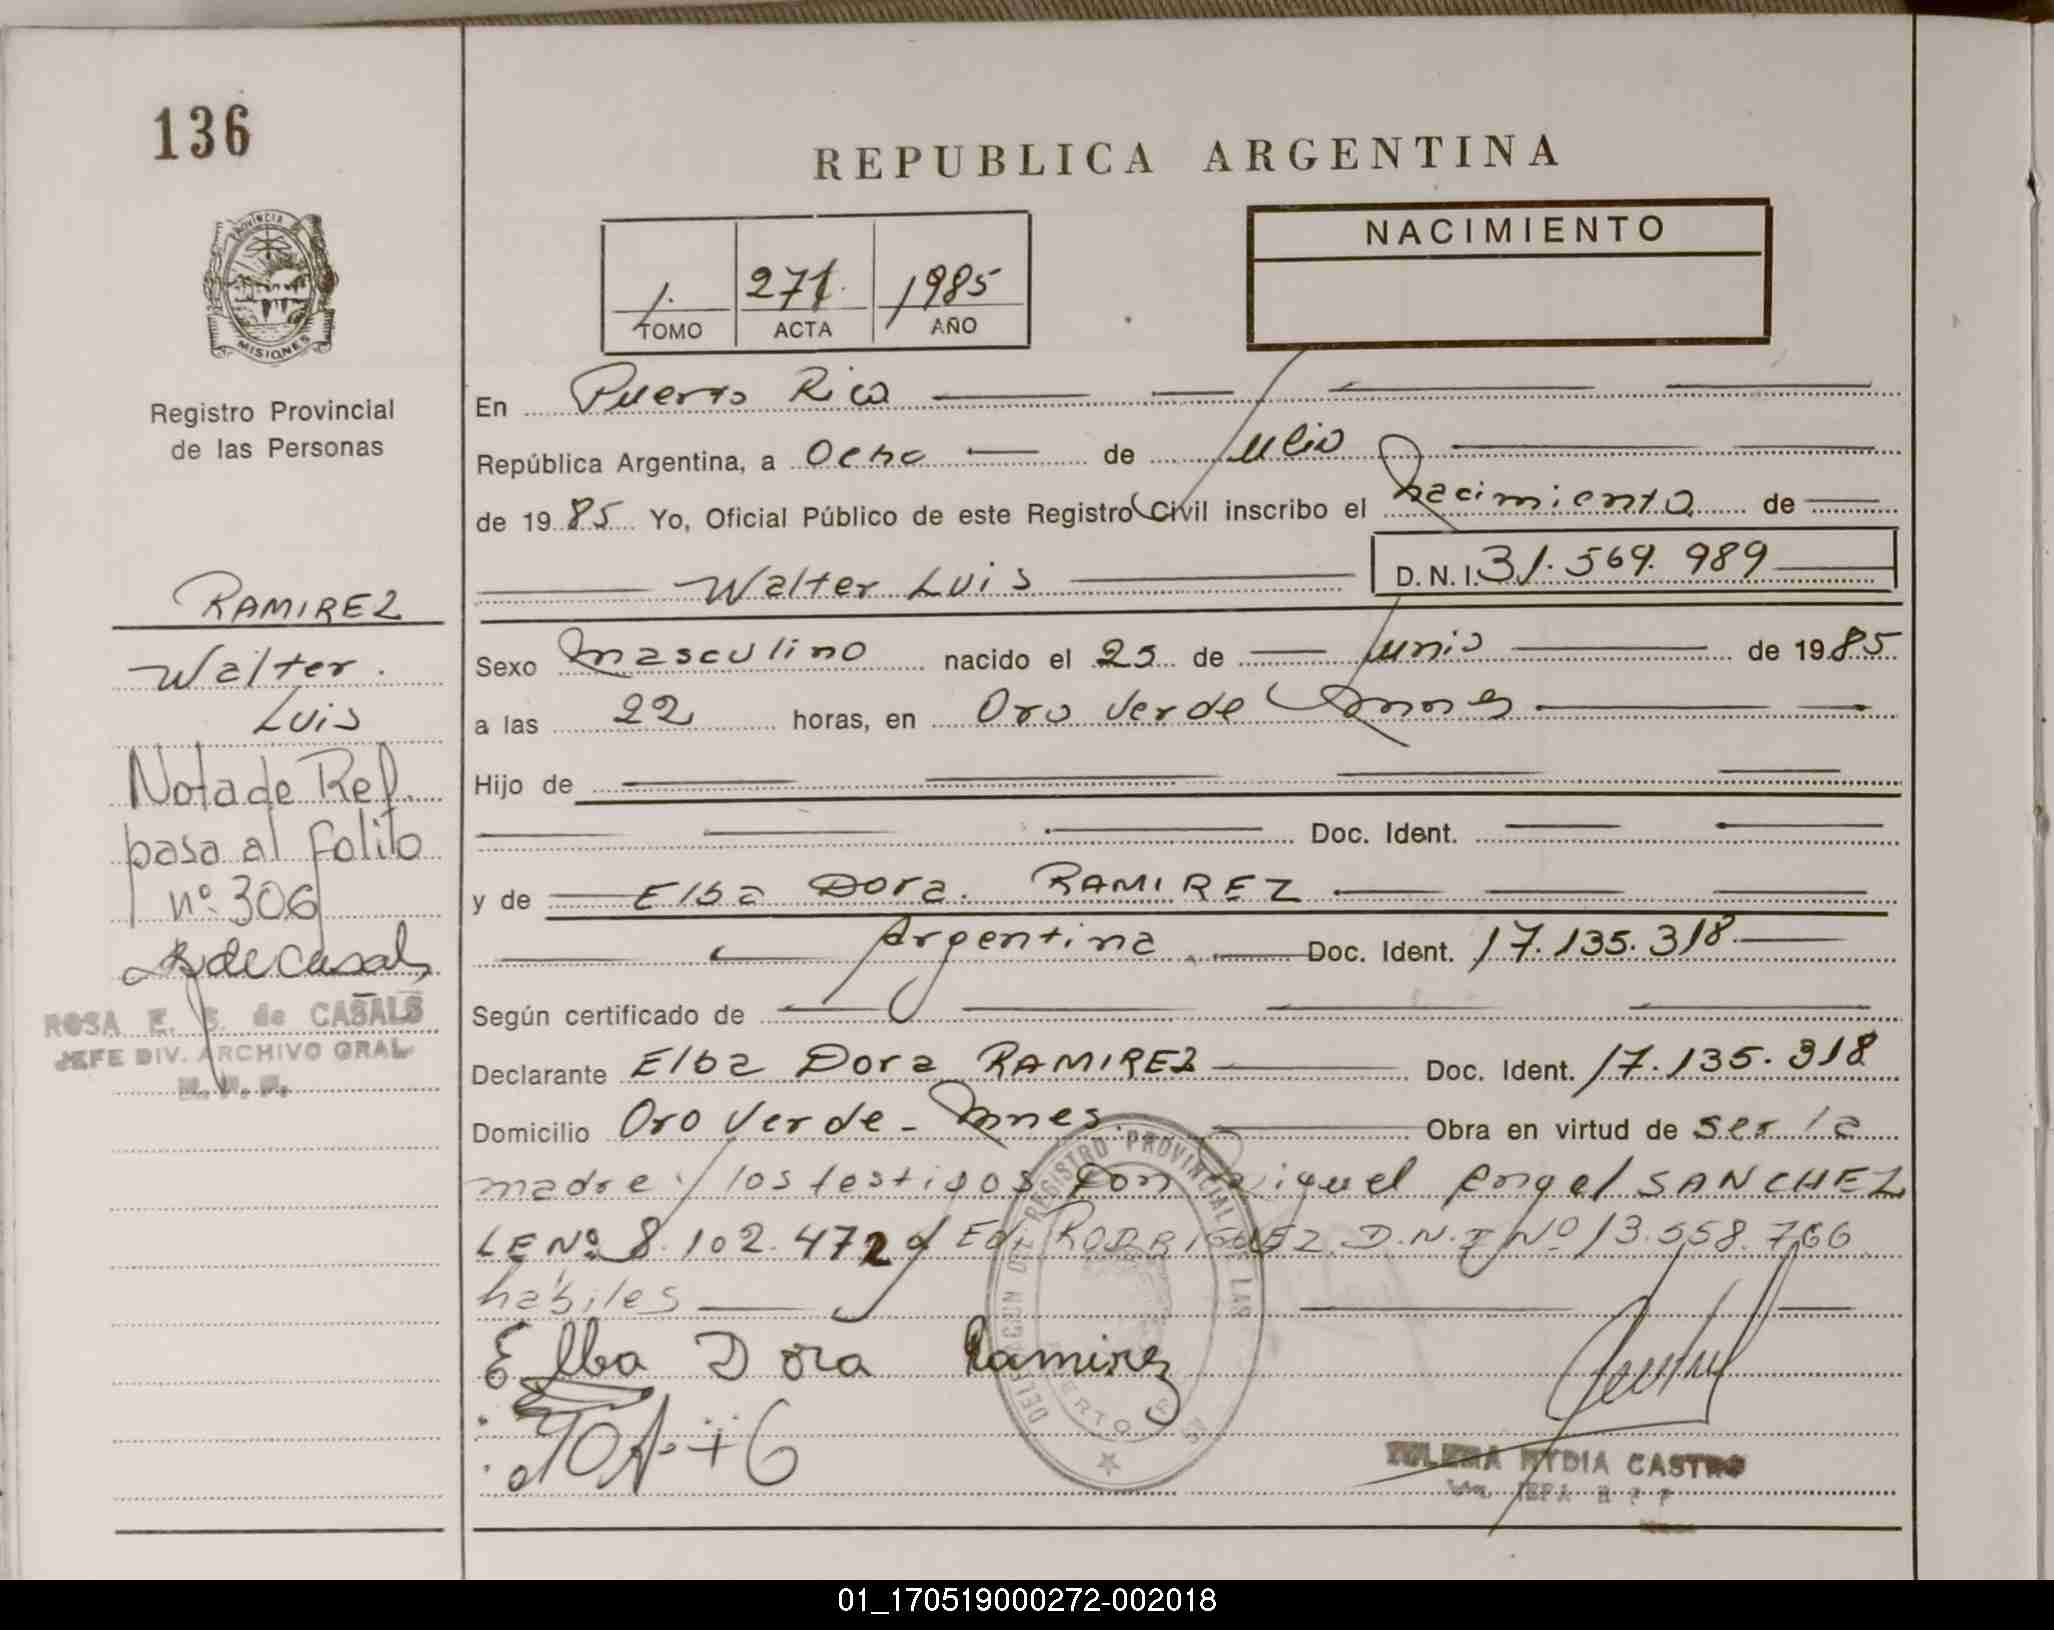 136
REPUBLICA ARGENTINA
PROVINCIA
MISIONES
Registro Provincial
de las Personas
1. 271. 1985
TOMO ACTA AÑO
NACIMIENTO
En Puerto Rico
República Argentina, a Ocho de Julio
de 1985 Yo, Oficial Público de este Registro Civil inscribo el nacimiento de
Walter Luis D.N.I. 31.569.989
RAMIREZ
Walter.
Luis
Nota de Ref.
pasa al folito
nº 306
R de Casals
ROSA E. S. de CASALS
JEFE DIV. ARCHIVO GRAL.
Sexo masculino nacido el 25 de Junio de 1985
a las 22 horas, en Oro Verde Mnes
Hijo de
Doc. Ident.
y de Elba Dora. RAMIREZ
Argentina Doc. Ident. 17.135.318
Según certificado de
Declarante Elba Dora RAMIREZ Doc. Ident. 17.135.318
Domicilio Oro Verde - Mnes. Obra en virtud de ser la
madre y los testigos Don Miguel Angel SANCHEZ
LE Nº 8.102.472 y Ed. RODRIGUEZ D.N.I Nº 13.558.766
hábiles
Elba Dora Ramirez
DELEGACION DEL REGISTRO PROVINCIAL DE LAS
PUERTO RICO
ZULEMA NYDIA CASTRO
01_170519000272-002018